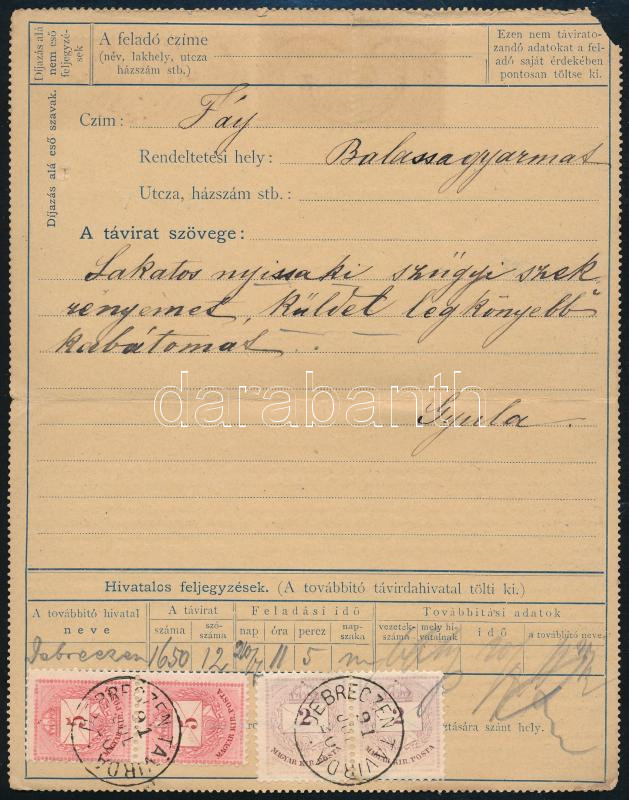 Díjazás alá
nem eső
feljegyzé-
sek
A feladó czíme
(név, lakhely, utcza
házszám stb.)
Ezen nem távirato-
zandó adatokat a fel-
adó saját érdekében
pontosan töltse ki.
Díjazás alá eső szavak.
Czím: Fáy
Rendeltetési hely: Balassagyarmat
Utcza, házszám stb.:
A távirat szövege:
Lakatos nyissa ki szügyi szek
rényemet, küldet legkönyebb
kabátomat.
darabanth
Gyula
Hivatalos feljegyzések. (A továbbító távirdahivatal tölti ki.)
A továbbító hivatal
neve
A távirat
száma
szó-
száma
Feladási idő
nap
óra
perez
nap-
szaka
Továbbítási adatok
vezeték-
száma
mely hi-
vatalnak
idő
a továbbító neve
Debreczen 1650 12 20/7 11 5 m
5
5
MAGYAR KIR. POSTA
DEBRECZEN TAVIRDA
91
2
MAGYAR KIR. POSTA
MAGYAR KIR. POSTA
DEBRECZEN TAVIRDA
91
ására szánt hely.